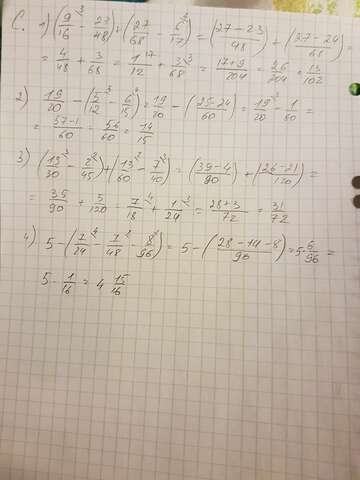 C. 1) (9/16 - 23/48) + (27/68 - 6/17) = (27-23/48) + (27-24/68) =
= 4/48 + 3/68 = 1/12 + 3/68 = 17+9/204 = 26/204 = 13/102
2) 19/20 - (5/12 - 6/15) = 19/20 - (25-24/60) = 19/20 - 1/60 =
= 57-1/60 = 56/60 = 14/15
3) (13/30 - 2/45) + (13/60 - 7/40) = (39-4/90) + (26-21/120) =
= 35/90 + 5/120 = 7/18 + 1/24 = 28+3/72 = 31/72
4) 5 - (7/24 - 7/48 - 8/96) = 5 - (28-14-8/90) = 5 - 6/96 =
5 - 1/16 = 4 15/16